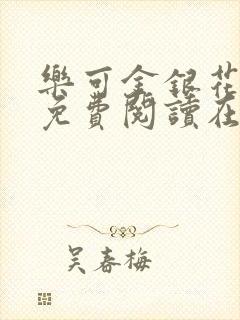 樂可金銀花
免費閱讀在
吴春梅